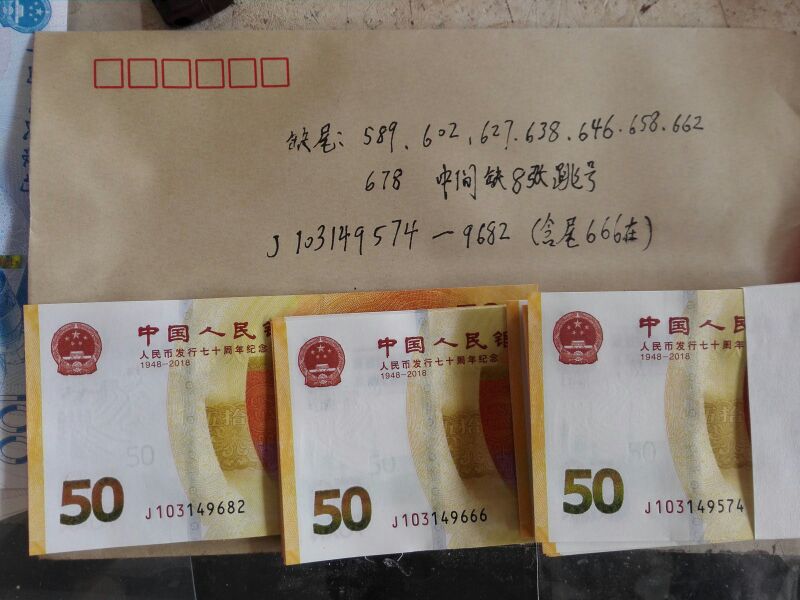 缺尾: 589、602、627.638.646.658.662
678 中间缺8张跳号
J103149574—9682 (含尾666在)
中国人民银
人民币发行七十周年纪念
1948-2018
50
J103149682
中国人民
人民币发行七十周年纪念
1948-2018
50
J103149666
中国人民
人民币发行七十周年纪
1948-2018
50
J103149574